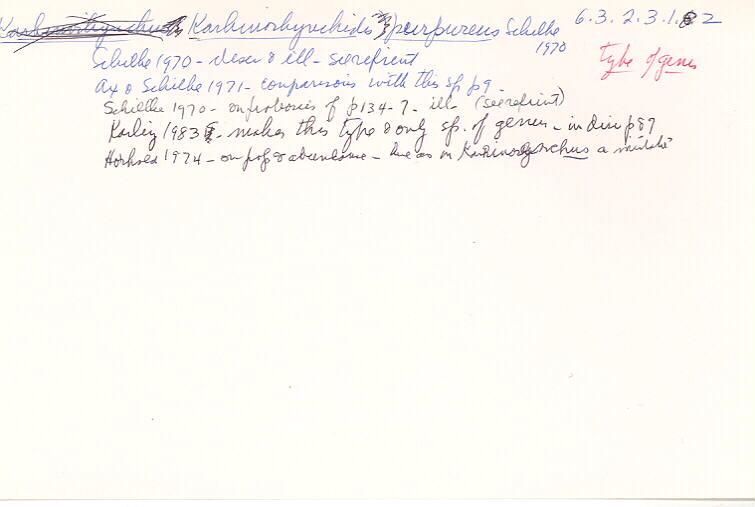 Karkinorhynchides purpureus Schilke 1970 6.3.2.3.1.2
type of genus
Schilke 1970 - descr & ill - see refrint
Ax & Schilke 1971 - comparisons with this sp p9
Schilke 1970 - on proboscis of p134-7 - ill - (see refrint)
Karling 1983 - makes this type & only sp. of genus - in div p87
1974 - on & abundance - as in Karkinorhynchus a mistake